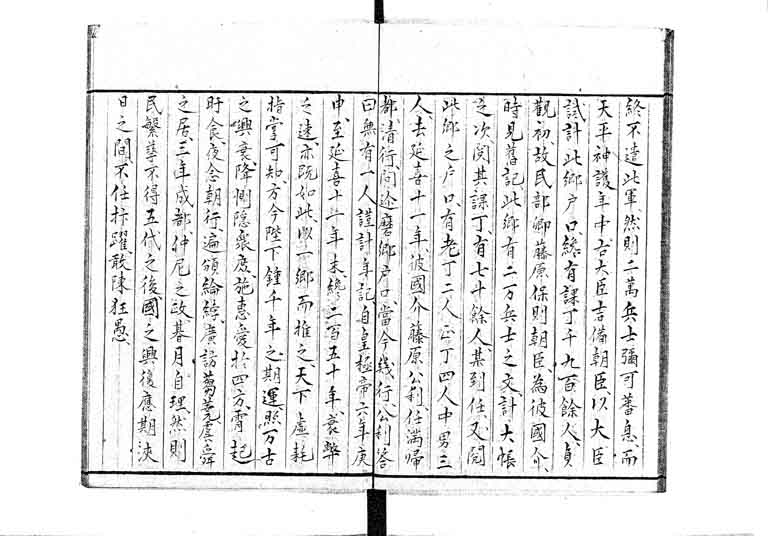 終不遣此軍然則二萬兵士彌可蕃息而
天平神護年中右大臣吉備朝臣以大臣
試計此郷戸口纔有課丁千九百餘人貞
觀初故民部卿藤原保則朝臣為彼國介
時見舊記此郷有二万兵士之文計大帳
之次閲其課丁有七十餘人某到任又閲
此郷之戸口有老丁二人正丁四人中男三
人去延喜十一年彼國介藤原公利任滿帰
都清行問迩磨郷戸口當今幾行公利答
曰無有一人謹計年記自皇極帝六年庚
申至延喜十一年未纔二百五十年衰弊
之速亦既如此以一郷而推之天下虚耗
指掌可知方今陛下鍾千年之期運照万古
之興衰降惻隠衆庶施恵愛於四方宵起
旰食夜念朝行遍頒綸綍廣訪蒭蕘虞舜
之居三年成都仲尼之政朞月自理然則
民繁孳不得五代之後國之興復應期浹
日之間不任抃躍敢陳狂愚